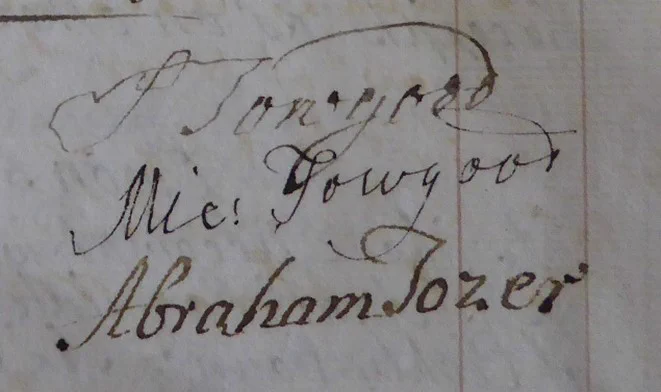 Towgood
Mic: Towgood
Abraham Tozer